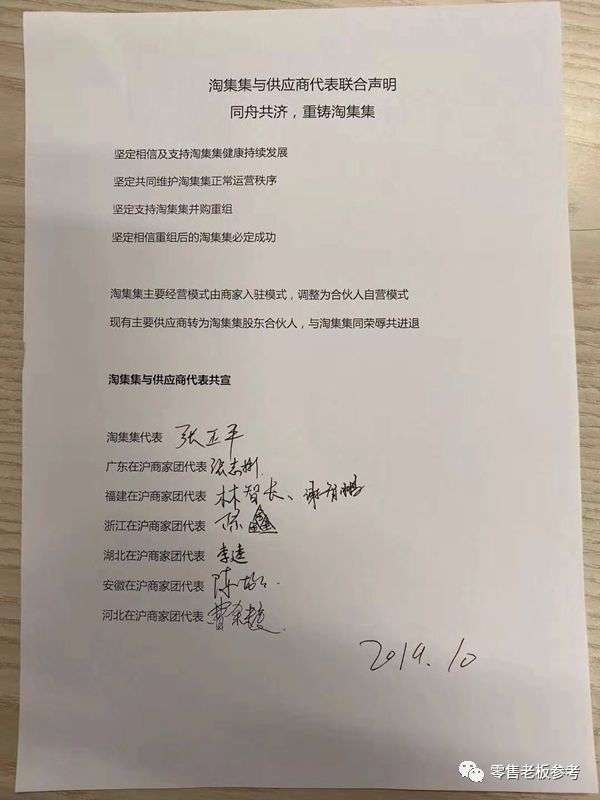 淘集集与供应商代表联合声明
同舟共济，重铸淘集集
坚定相信及支持淘集集健康持续发展
坚定共同维护淘集集正常运营秩序
坚定支持淘集集并购重组
坚定相信重组后的淘集集必定成功
淘集集主要经营模式由商家入驻模式，调整为合伙人自营模式
现有主要供应商转为淘集集股东合伙人，与淘集集同荣辱共进退
淘集集与供应商代表共宣
淘集集代表 张正平
广东在沪商家团代表
福建在沪商家团代表 林智长、
浙江在沪商家团代表 陈鑫
湖北在沪商家团代表 李建
安徽在沪商家团代表 陈
河北在沪商家团代表
2019.10
零售老板参考